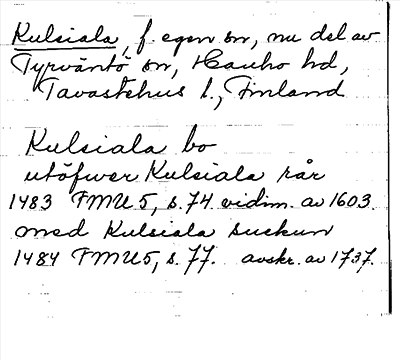 Kulsiala, f. egen sn, nu del av
Tyrväntö sn, Hauho hd,
Tavastehus l., Finland
Kulsiala bo
utöfwer Kulsiala rår
1483 FMU 5, s. 74 vidim. av 1603.
med Kulsiala suckun
1484 FMU 5, s. 77. avskr. av 1737.